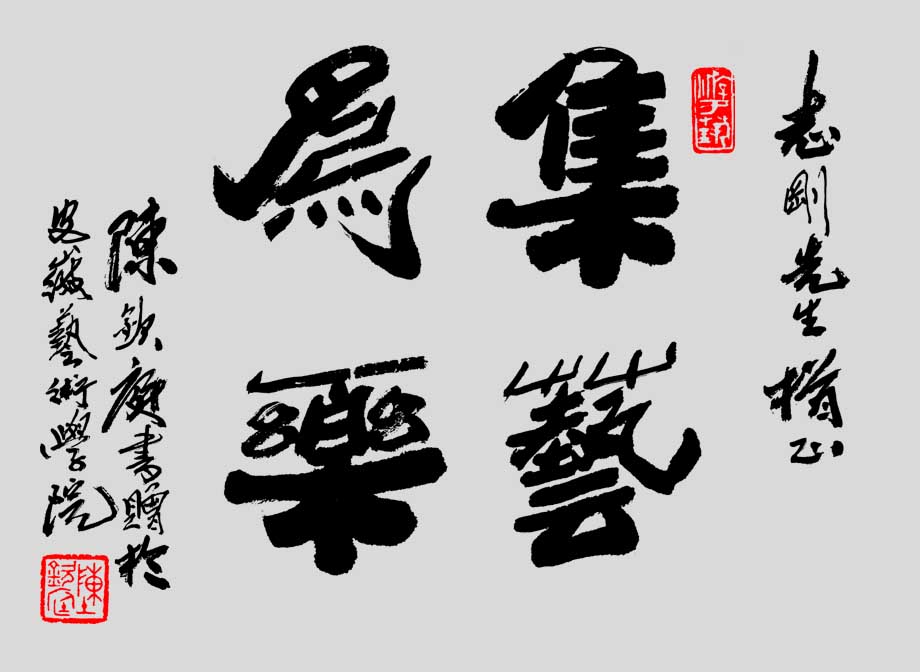 志剛先生楷正
游藝
集藝
為樂
陳欽庭書贈於
安徽藝術學院